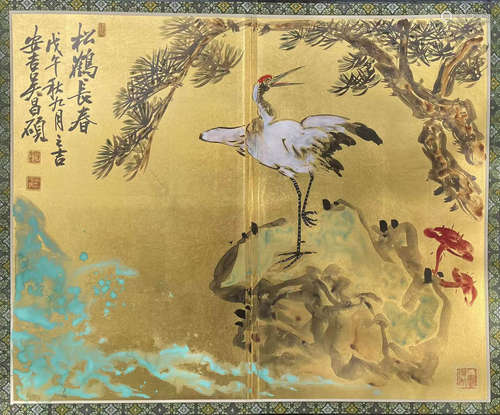 松鶴長春
戊午秋九月之吉
安吉吳昌碩